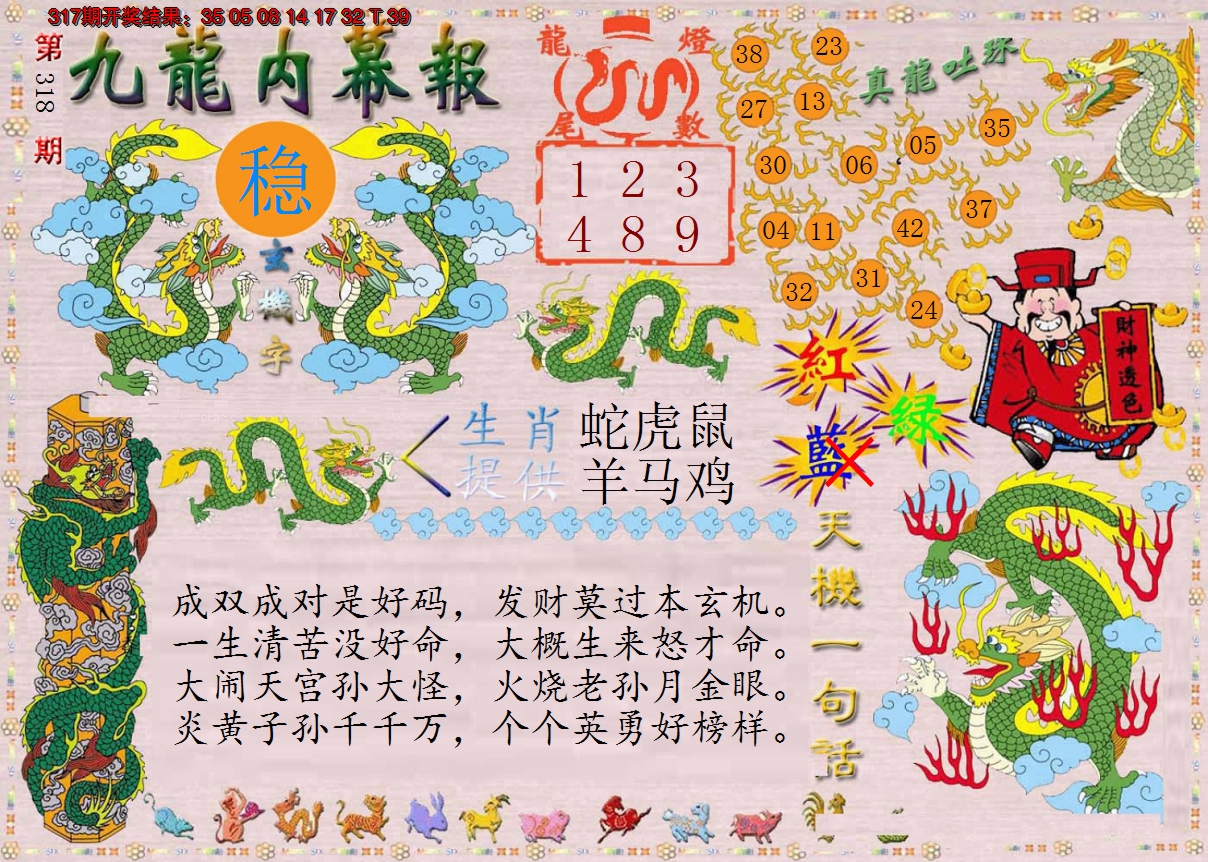 317期开奖结果：35 05 06 14 17 32 T 39
第318期
九龍内幕報
稳
玄機字
龍燈
尾數
1 2 3
4 8 9
真龍吐珠
38 23
27 13
30 06 05 35
04 11 42 37
32 31 24
紅
綠
藍
財神透色
生肖提供
蛇虎鼠
羊马鸡
成双成对是好码，发财莫过本玄机。
一生清苦没好命，大概生来怒才命。
大闹天宫孙大怪，火烧老孙月金眼。
炎黄子孙千千万，个个英勇好榜样。
天機一句話